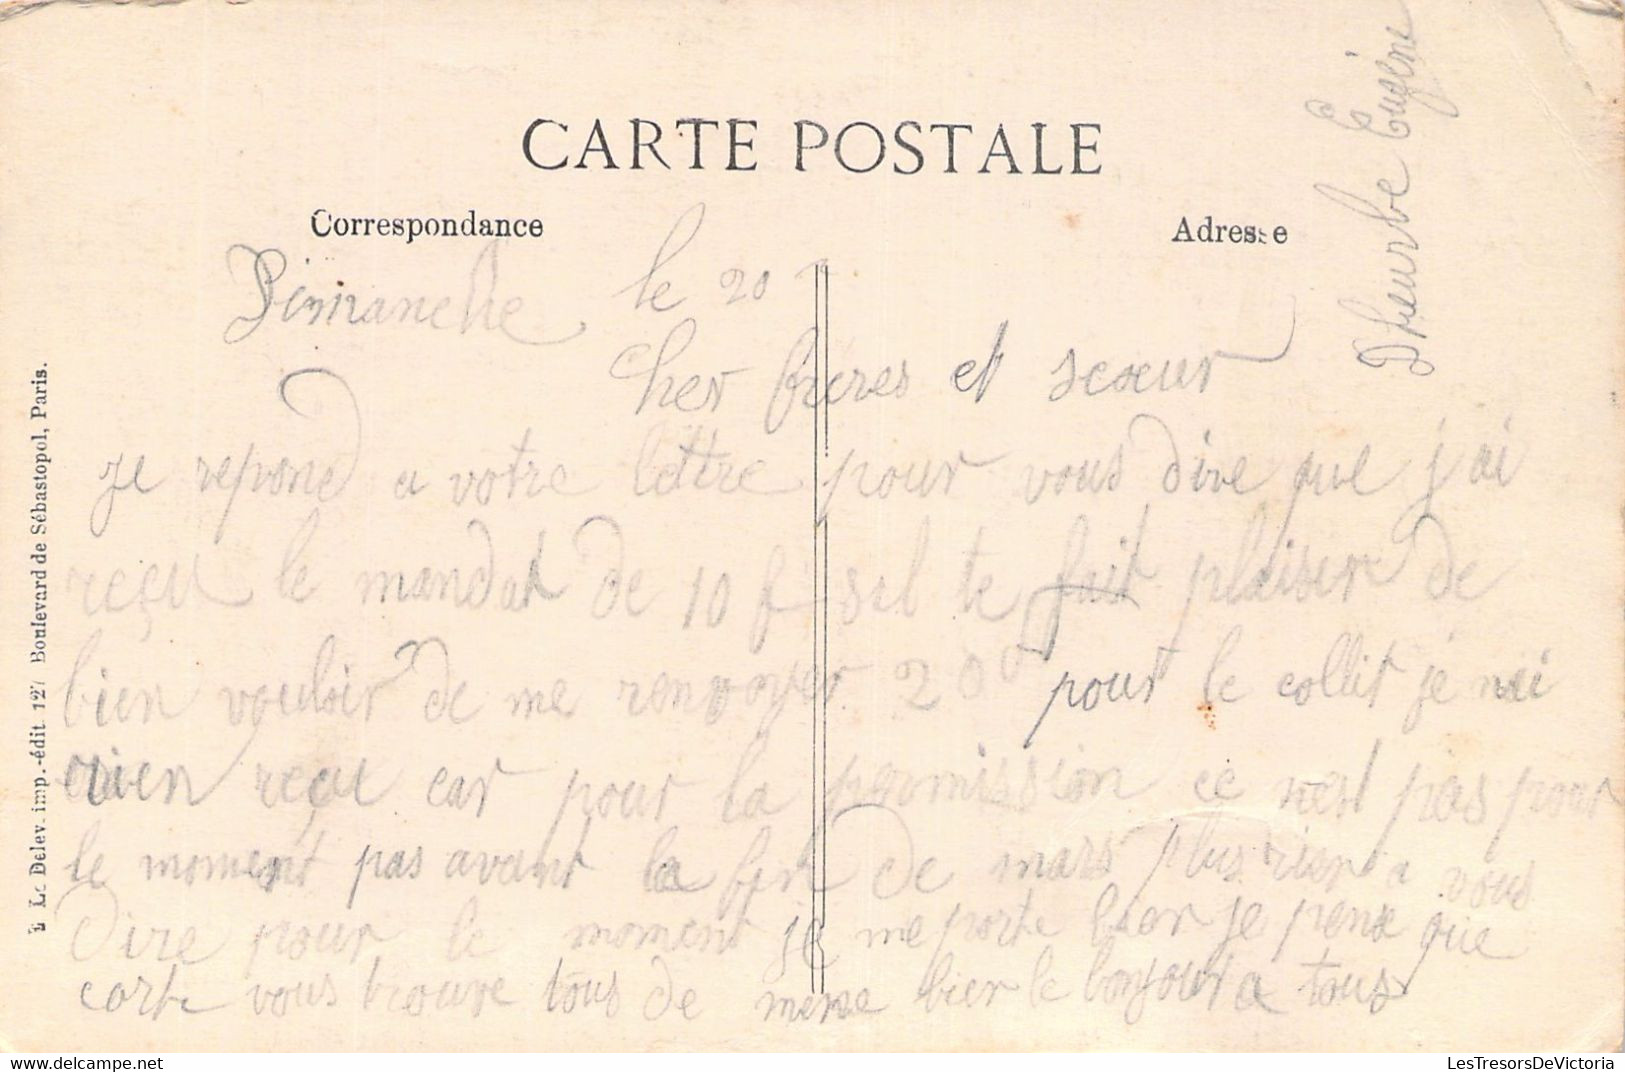 CARTE POSTALE
Correspondance
Adresse
Dheurbe Eugène
Dimanche le 20
Cher freres et scœur
je repond a votre lettre pour vous dire que j'ai
reçu le mandat de 10 f sil te fait plaiser de
bien vouloir de me renvoyer 20 pour le collit je nai
rien reçu car pour la permission ce nest pas pour
le moment pas avant la fin de mars plus rien a vous
dire pour le moment je me porte bien je pense que
carte vous trouve tous de meme bien le bonjour a tous
E. Le Deley, imp.-édit. 127 Boulevard de Sébastopol, Paris.
LesTresorsDeVictoria